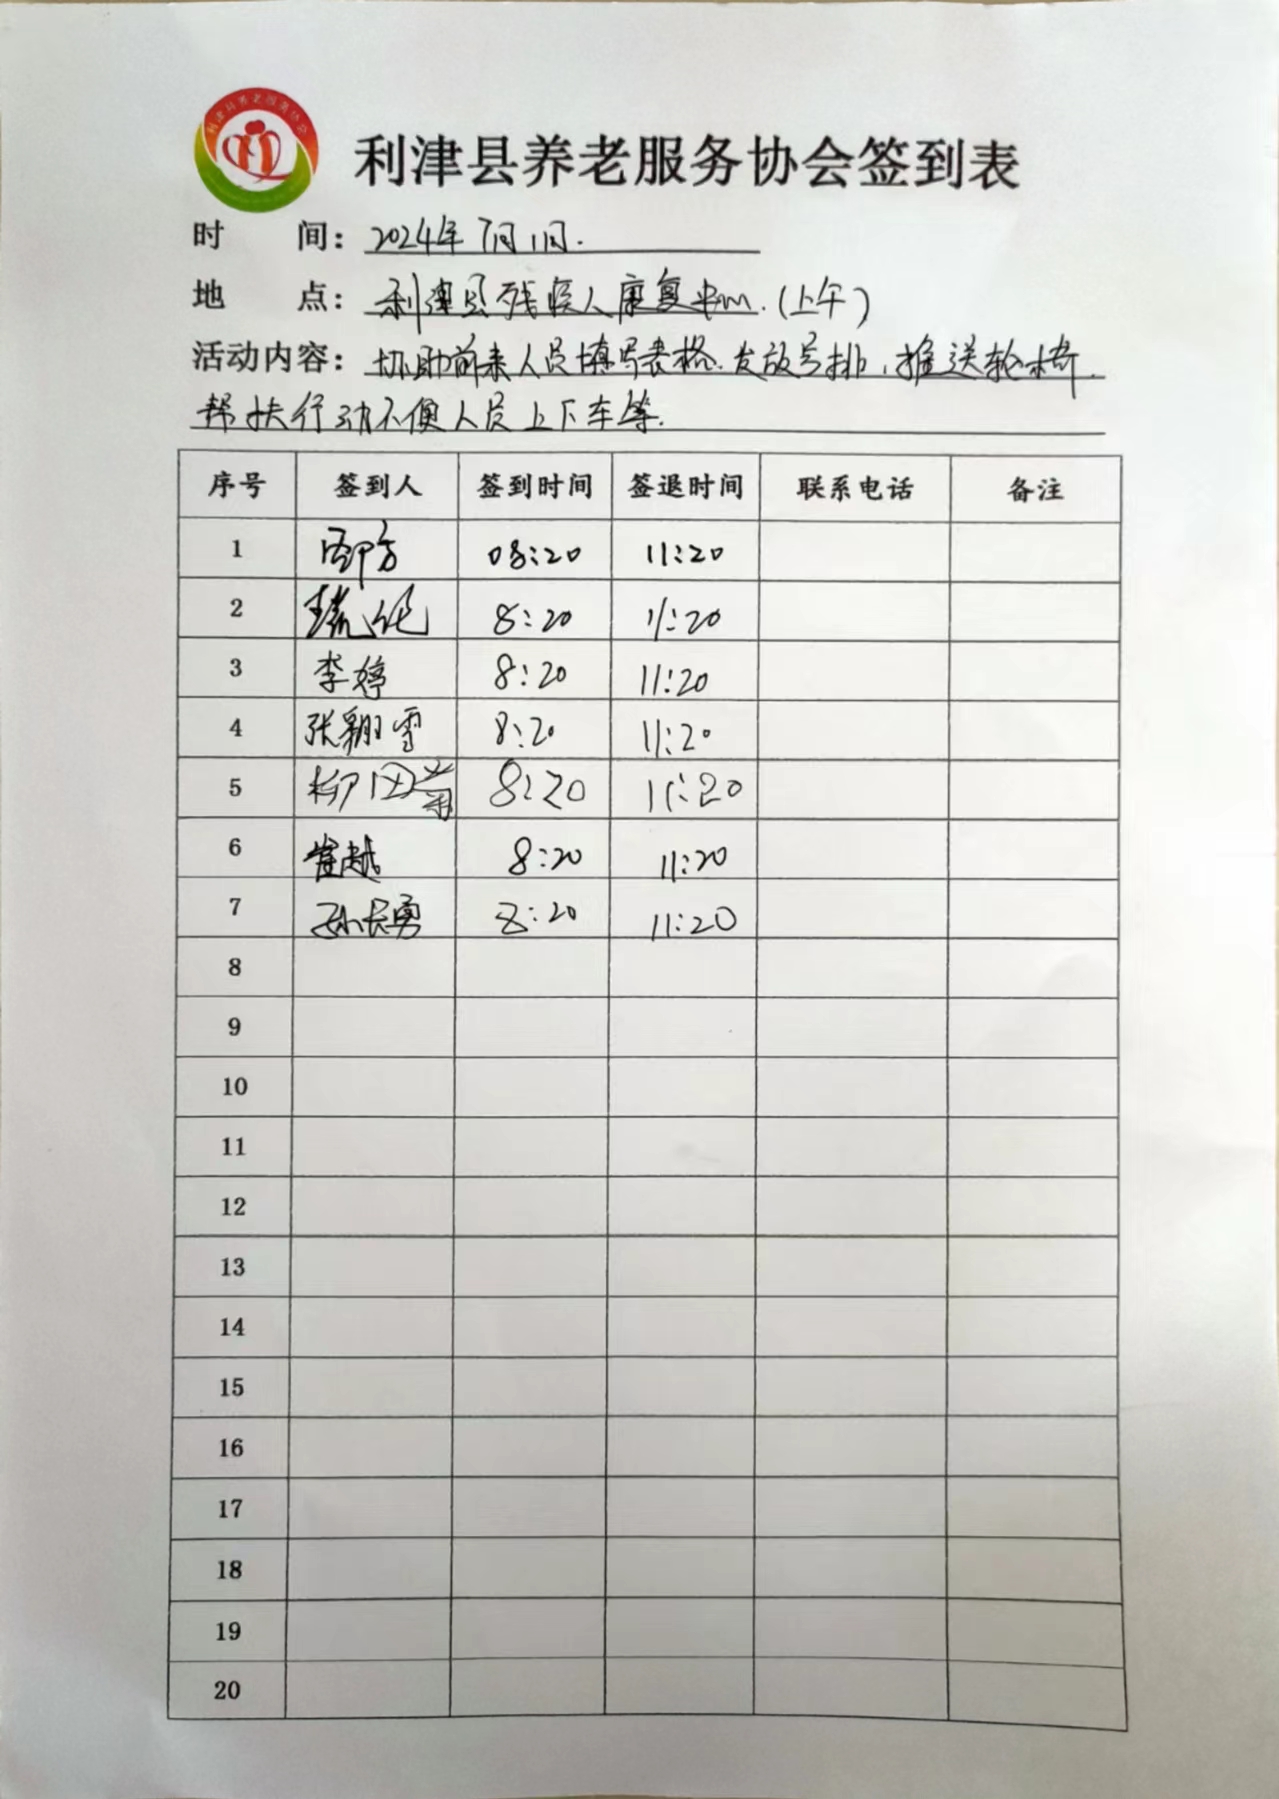 利津县养老服务协会
利津县养老服务协会签到表
时 间：2024年7月1日.
地 点：利津县残疾人康复中心.(上午)
活动内容：协助前来人员填写表格.发放号排,推送轮椅.
帮扶行动不便人员上下车等.
序号 签到人 签到时间 签退时间 联系电话 备注
1 08:20 11:20
2 8:20 11:20
3 李婷 8:20 11:20
4 张翩雪 8:20 11:20
5 柳国菊 8:20 11:20
6 崔越 8:20 11:20
7 孙长勇 8:20 11:20
8
9
10
11
12
13
14
15
16
17
18
19
20